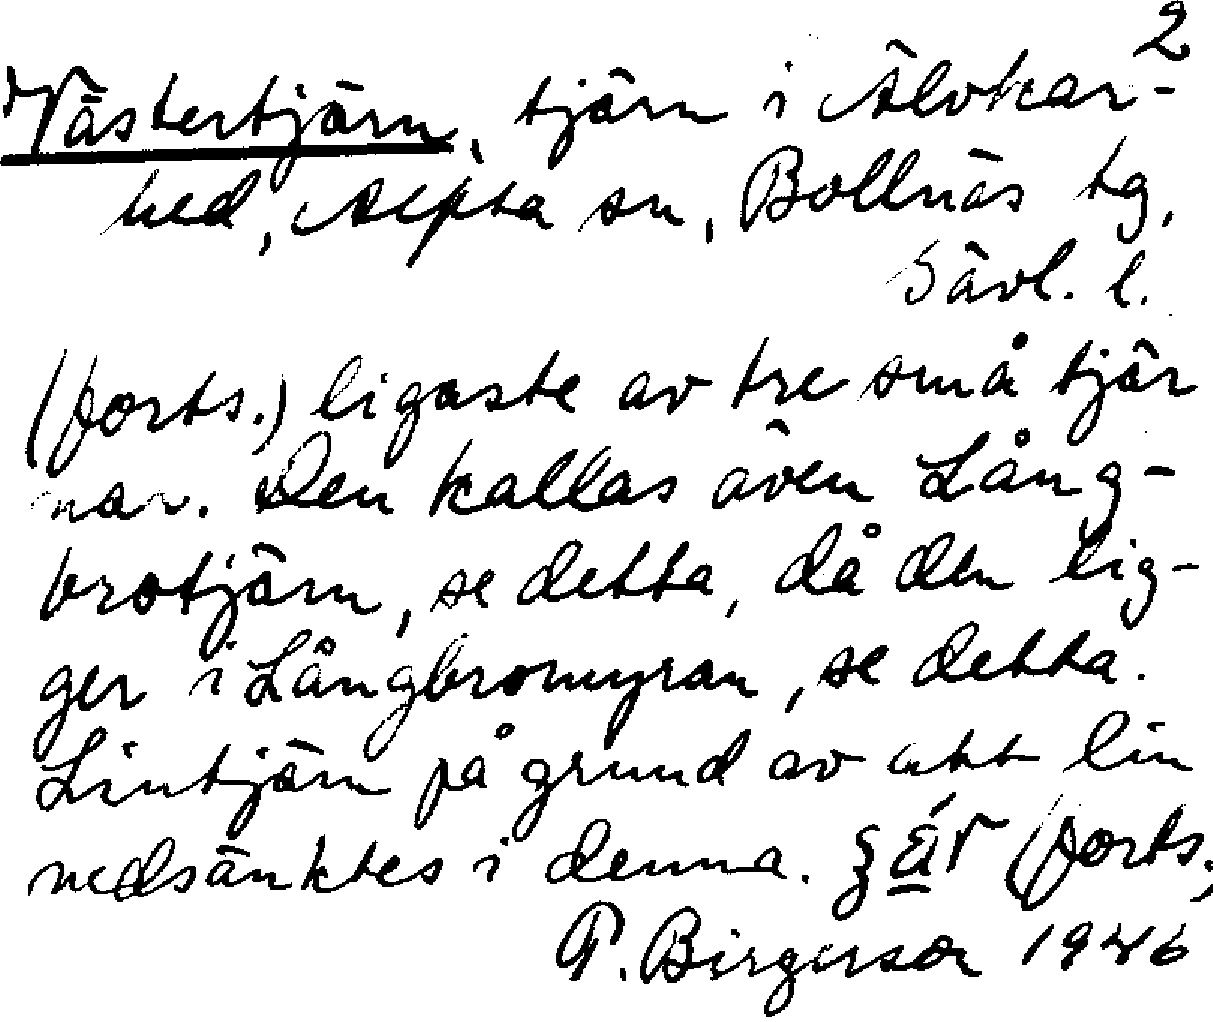 2
Västertjärn, tjärn i Älvkar-
hed, Alfta sn, Bollnäs tg,
Gävl. l.
(forts.) ligaste av tre små tjär
nar. Den kallas även Lång-
brotjärn, se detta, då den lig-
ger i Långbromyran, se detta.
Lintjärn på grund av att lin
nedsänktes i denna. (forts.)
P. Birgerson 1946